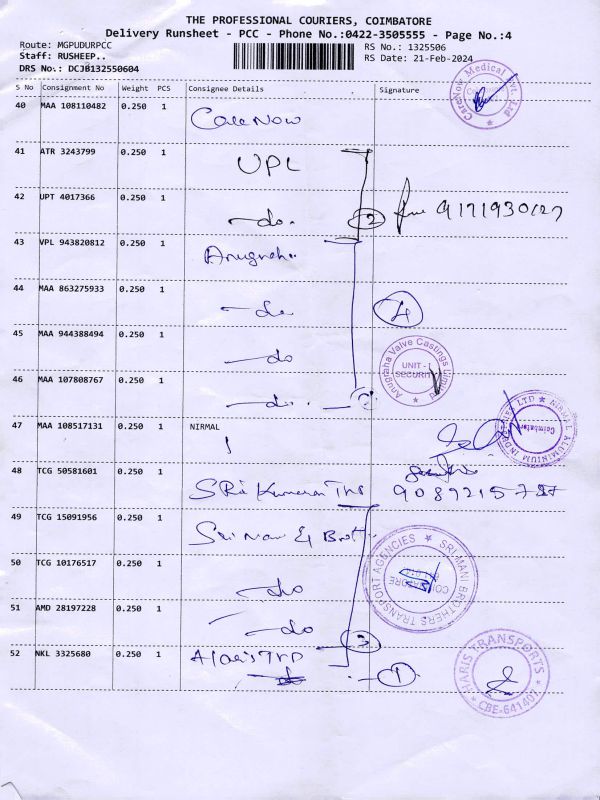 THE PROFESSIONAL COURIERS, COIMBATORE
Delivery Runsheet - PCC - Phone No.:0422-3505555 - Page No.:4
Route: MGPUDURPCC
RS No.: 1325506
Staff: RUSHEEP..
RS Date: 21-Feb-2024
DRS No.: DCJB132550604
S No Consignment No Weight PCS Consignee Details Signature
40 MAA 108110482 0.250 1 CareNow
CareNow Medical Pvt
41 ATR 3243799 0.250 1 UPL
42 UPT 4017366 0.250 1 -do. 2
43 VPL 943820812 0.250 1 Anugraha
44 MAA 863275933 0.250 1 -do 4
45 MAA 944388494 0.250 1 -do
Anugraha Valve Castings Limited
UNIT - I
SECURITY
46 MAA 107808767 0.250 1 -do.
47 MAA 108517131 0.250 1 NIRMAL
NIRMAL ALUMINIUM INDUSTRIES LTD
Coimbatore
48 TCG 50581601 0.250 1 SRi Kumaran Trs
49 TCG 15091956 0.250 1 Sri Mani & Brot
50 TCG 10176517 0.250 1 -do
SRI MANI BROTHERS TRANSPORT AGENCIES
51 AMD 28197228 0.250 1 -do 3
52 NKL 3325680 0.250 1 1
HARIS TRANSPORTS
CBE-641407